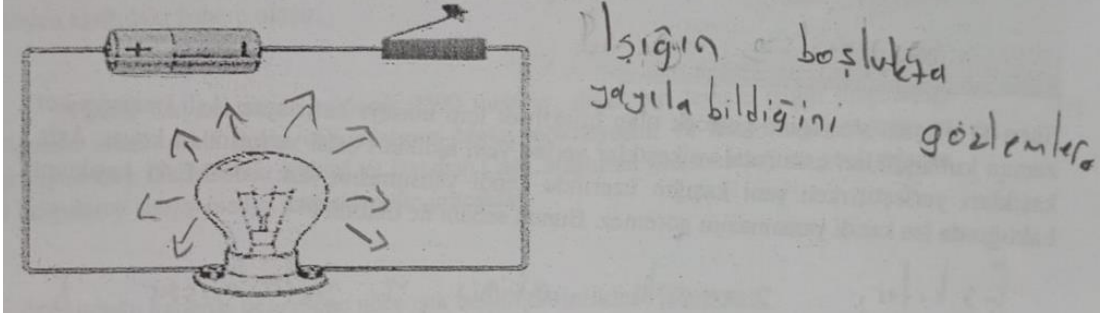 Işığın boşlukta
yayıla bildiğini gözlemler.
+ -